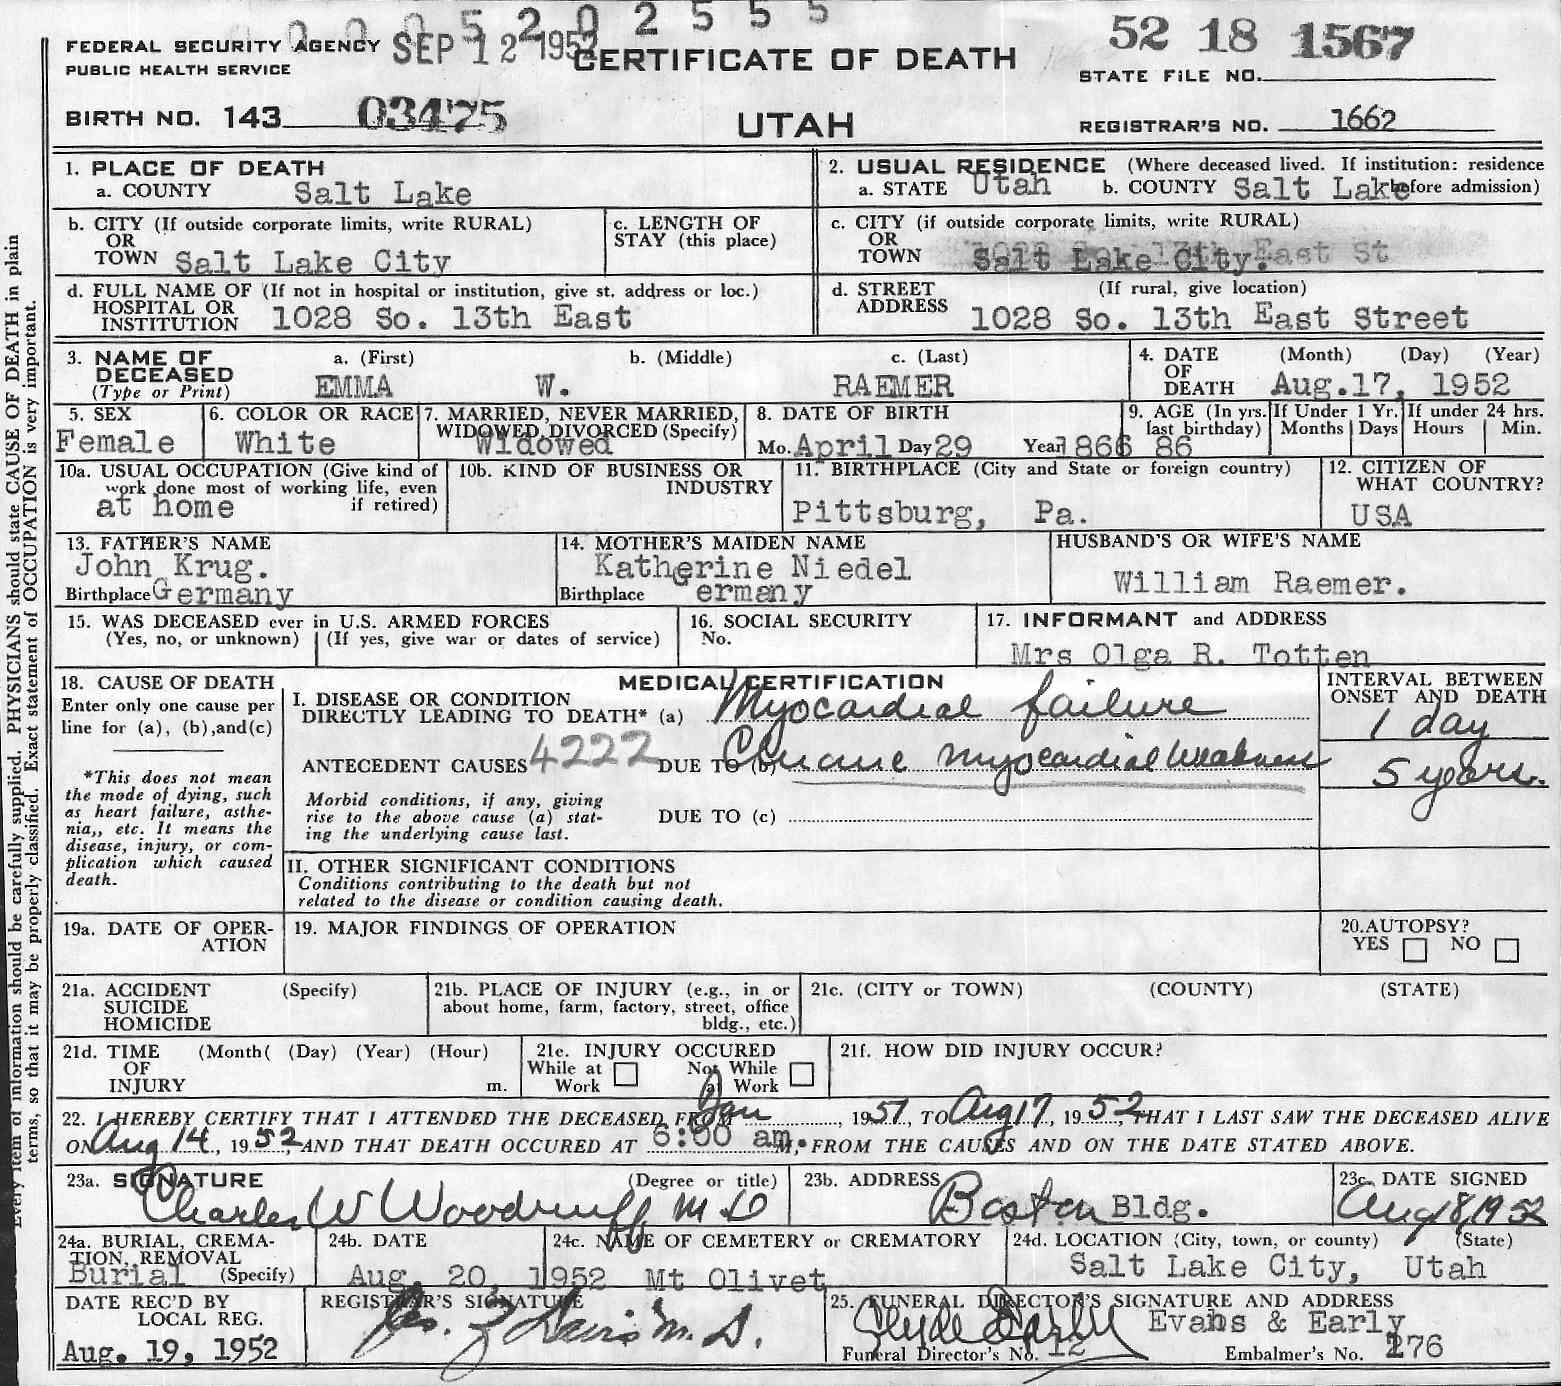 00052025 5 5
FEDERAL SECURITY AGENCY SEP 12 1952 CERTIFICATE OF DEATH 52 18 1567
PUBLIC HEALTH SERVICE STATE FILE NO.
BIRTH NO. 143 03475 UTAH REGISTRAR'S NO. 1662
1. PLACE OF DEATH
a. COUNTY Salt Lake
2. USUAL RESIDENCE (Where deceased lived. If institution: residence before admission)
a. STATE Utah b. COUNTY Salt Lake
b. CITY (If outside corporate limits, write RURAL)
OR
TOWN Salt Lake City
c. LENGTH OF
STAY (this place)
c. CITY (if outside corporate limits, write RURAL)
OR
TOWN Salt Lake City.
d. FULL NAME OF (If not in hospital or institution, give st. address or loc.)
HOSPITAL OR
INSTITUTION 1028 So. 13th East
d. STREET (If rural, give location)
ADDRESS 1028 So. 13th East Street
3. NAME OF DECEASED (Type or Print)
a. (First) b. (Middle) c. (Last)
EMMA W. RAEMER
4. DATE OF DEATH (Month) (Day) (Year)
Aug.17, 1952
5. SEX
Female
6. COLOR OR RACE
White
7. MARRIED, NEVER MARRIED,
WIDOWED, DIVORCED (Specify)
Widowed
8. DATE OF BIRTH
Mo. April Day 29 Year 1866
9. AGE (In yrs. last birthday)
86
If Under 1 Yr.
Months Days
If under 24 hrs.
Hours Min.
10a. USUAL OCCUPATION (Give kind of
work done most of working life, even
if retired)
at home
10b. KIND OF BUSINESS OR
INDUSTRY
11. BIRTHPLACE (City and State or foreign country)
Pittsburg, Pa.
12. CITIZEN OF
WHAT COUNTRY?
USA
13. FATHER'S NAME
John Krug.
Birthplace Germany
14. MOTHER'S MAIDEN NAME
Katherine Niedel
Birthplace Germany
HUSBAND'S OR WIFE'S NAME
William Raemer.
15. WAS DECEASED ever in U.S. ARMED FORCES
(Yes, no, or unknown) (If yes, give war or dates of service)
16. SOCIAL SECURITY
No.
17. INFORMANT and ADDRESS
Mrs Olga R. Totten
18. CAUSE OF DEATH
Enter only one cause per
line for (a), (b),and(c)
*This does not mean
the mode of dying, such
as heart failure, asthe-
nia,, etc. It means the
disease, injury, or com-
plication which caused
death.
MEDICAL CERTIFICATION
I. DISEASE OR CONDITION
DIRECTLY LEADING TO DEATH* (a) Myocardial failure
ANTECEDENT CAUSES 4222 DUE TO (b) Chronic myocardial weakness
Morbid conditions, if any, giving
rise to the above cause (a) stat-
ing the underlying cause last.
DUE TO (c)
INTERVAL BETWEEN
ONSET AND DEATH
1 day
5 years.
II. OTHER SIGNIFICANT CONDITIONS
Conditions contributing to the death but not
related to the disease or condition causing death.
19a. DATE OF OPER-
ATION
19. MAJOR FINDINGS OF OPERATION
20.AUTOPSY?
YES NO
21a. ACCIDENT (Specify)
SUICIDE
HOMICIDE
21b. PLACE OF INJURY (e.g., in or
about home, farm, factory, street, office
bldg., etc.)
21c. (CITY or TOWN) (COUNTY) (STATE)
21d. TIME (Month( (Day) (Year) (Hour)
OF
INJURY m.
21e. INJURY OCCURED
While at Not While
Work at Work
21f. HOW DID INJURY OCCUR?
22. I HEREBY CERTIFY THAT I ATTENDED THE DECEASED FROM Jan, 1951, TO Aug 17, 1952, THAT I LAST SAW THE DECEASED ALIVE
ON Aug 14, 1952, AND THAT DEATH OCCURED AT 6:00 am. M, FROM THE CAUSES AND ON THE DATE STATED ABOVE.
23a. SIGNATURE (Degree or title)
Charles W Woodruff M D
23b. ADDRESS
Boston Bldg.
23c. DATE SIGNED
Aug 18, 1952
24a. BURIAL, CREMA-
TION, REMOVAL
Burial (Specify)
24b. DATE
Aug. 20, 1952
24c. NAME OF CEMETERY or CREMATORY
Mt Olivet
24d. LOCATION (City, town, or county) (State)
Salt Lake City, Utah
DATE REC'D BY
LOCAL REG.
Aug. 19, 1952
REGISTRAR'S SIGNATURE
M. D.
25. FUNERAL DIRECTOR'S SIGNATURE AND ADDRESS
Clyde Early Evans & Early
Funeral Director's No. 12 Embalmer's No. 276
Every item of information should be carefully supplied. PHYSICIANS should state CAUSE OF DEATH in plain
terms, so that it may be properly classified. Exact statement of OCCUPATION is very important.